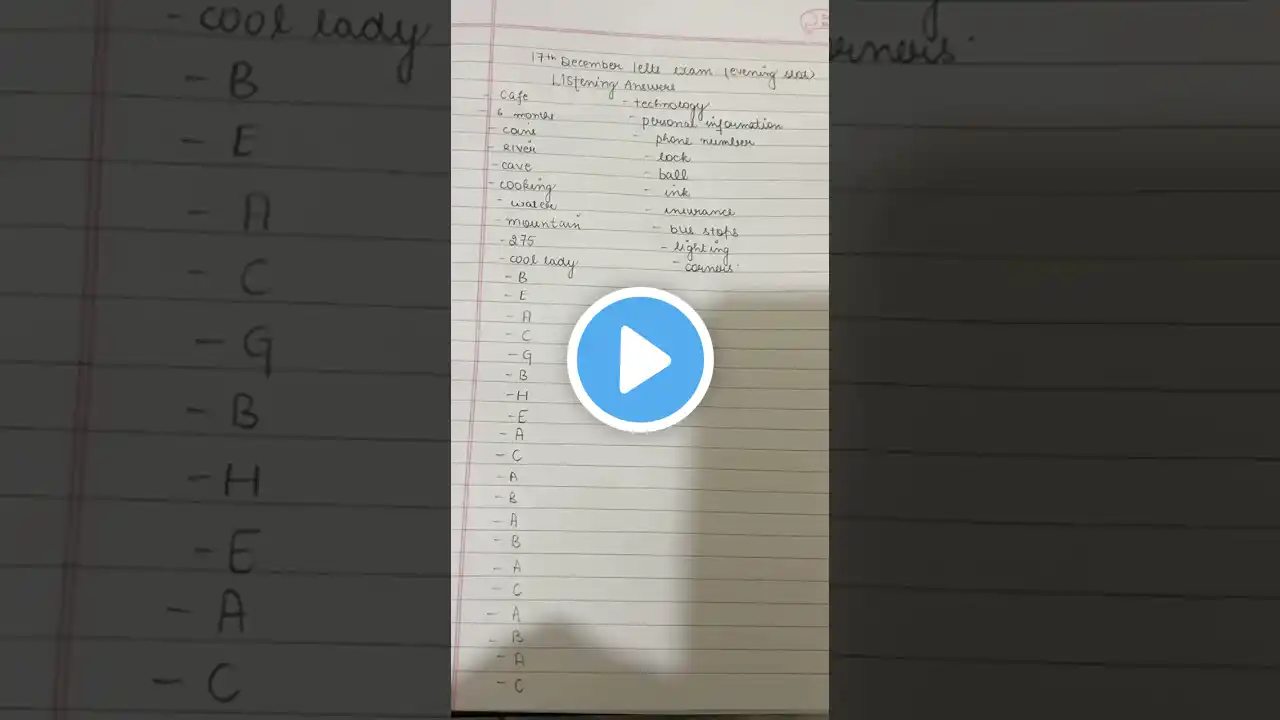 - cool lady
- B
- E
- A
- C
- G
- B
- H
- E
- A
- C
17th December Ielts exam (evening slot)
Listening Answers
- cafe
- 6 months
- coins
- River
- cave
- cooking
- water
- mountain
- 275
- cool lady
- B
- E
- A
- C
- G
- B
- H
- E
- A
- C
- A
- B
- A
- B
- A
- C
- A
- B
- A
- C
- technology
- personal information
- phone number
- lock
- ball
- ink
- insurance
- bus stops
- lighting
- corners